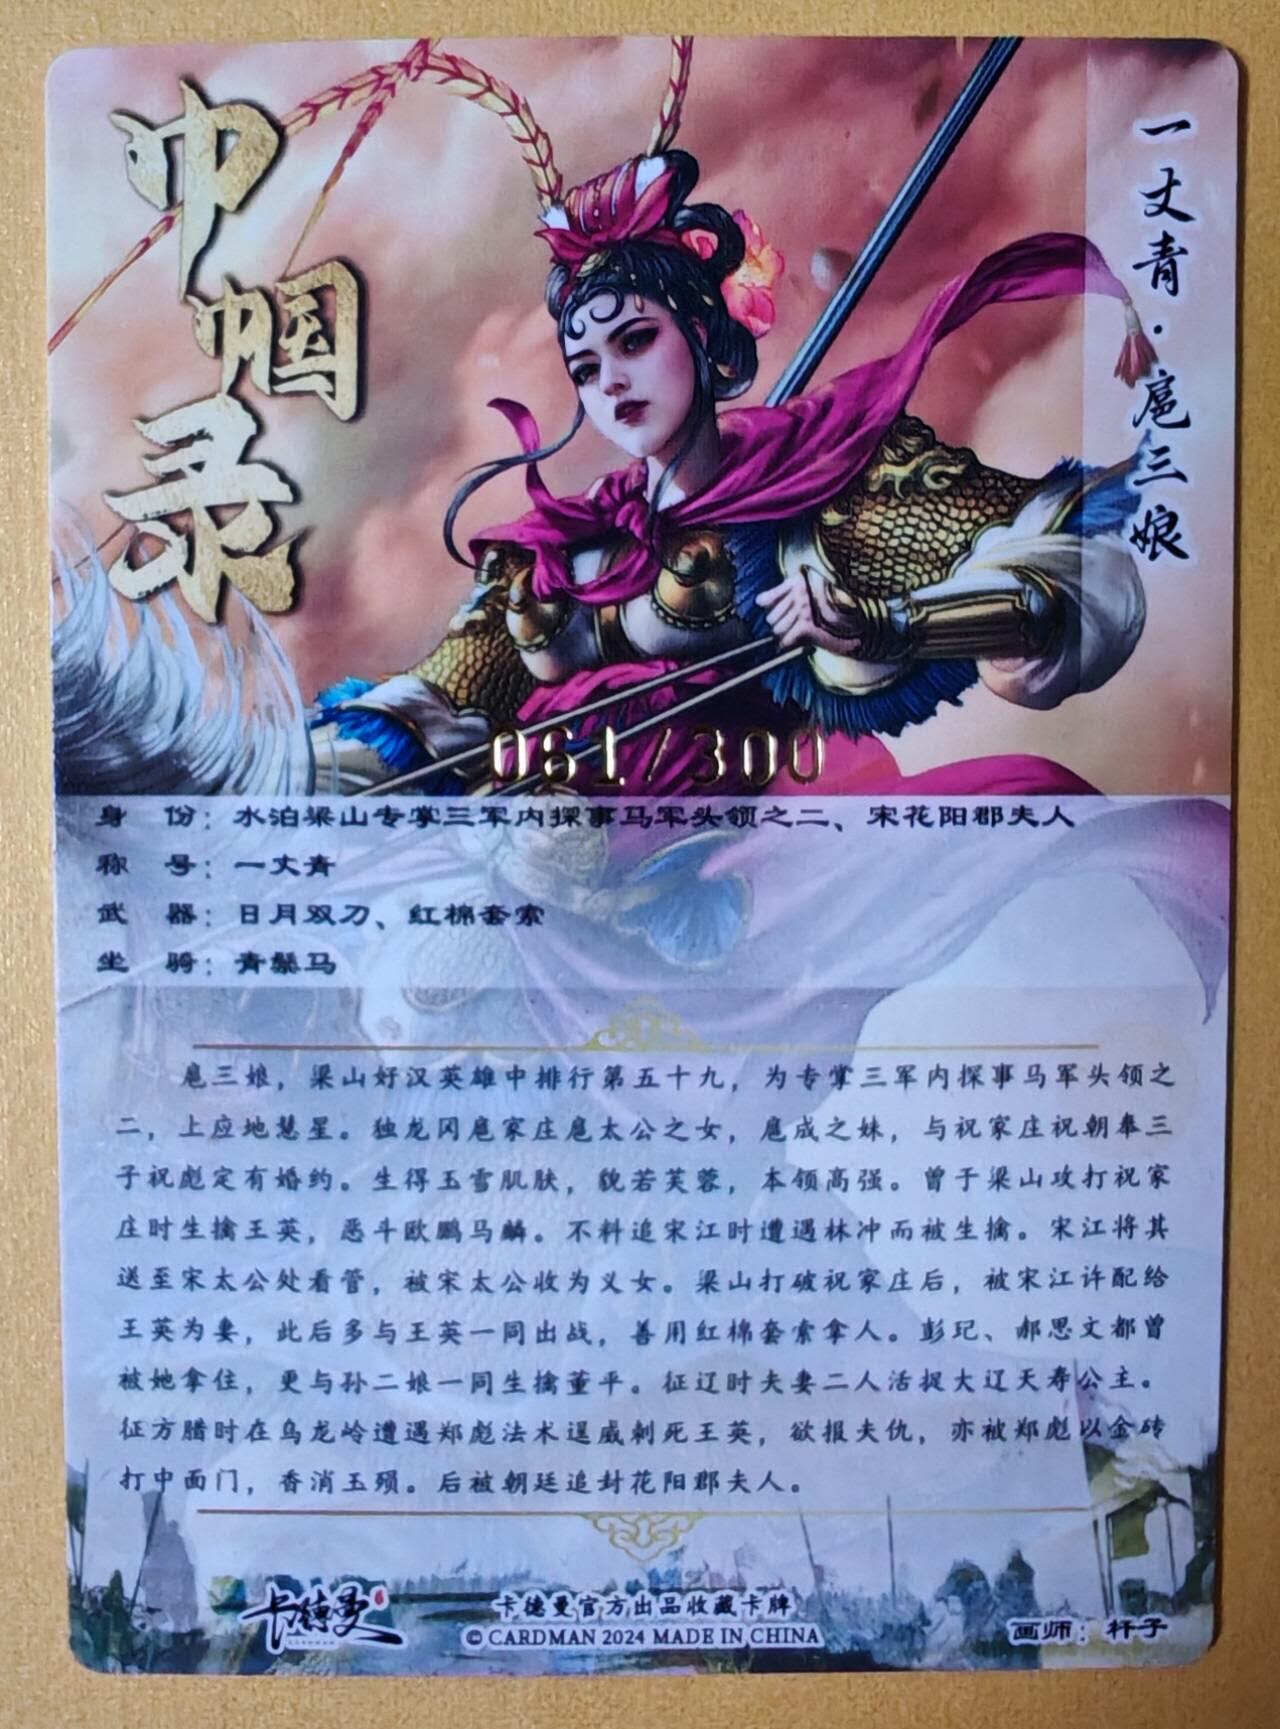 巾帼录
一丈青·扈三娘
061/300
身 份：水泊梁山专掌三军内探事马军头领之二、宋花阳郡夫人
称 号：一丈青
武 器：日月双刀、红棉套索
坐 骑：青鬃马
扈三娘，梁山好汉英雄中排行第五十九，为专掌三军内探事马军头领之
二，上应地慧星。独龙冈扈家庄扈太公之女，扈成之妹，与祝家庄祝朝奉三
子祝彪定有婚约。生得玉雪肌肤，貌若芙蓉，本领高强。曾于梁山攻打祝家
庄时生擒王英，恶斗欧鹏马麟。不料追宋江时遭遇林冲而被生擒。宋江将其
送至宋太公处看管，被宋太公收为义女。梁山打破祝家庄后，被宋江许配给
王英为妻，此后多与王英一同出战，善用红棉套索拿人。彭玘、郝思文都曾
被她拿住，更与孙二娘一同生擒董平。征辽时夫妻二人活捉大辽天寿公主。
征方腊时在乌龙岭遭遇郑彪法术逞威刺死王英，欲报夫仇，亦被郑彪以金砖
打中面门，香消玉殒。后被朝廷追封花阳郡夫人。
卡德曼
CARDMAN
卡德曼官方出品收藏卡牌
© CARDMAN 2024 MADE IN CHINA
画师：杆子